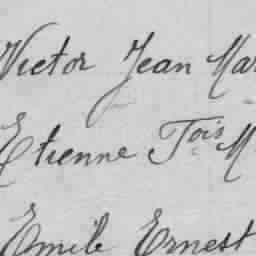 Victor Jean Mar
Etienne Fois M
Emile Ernest